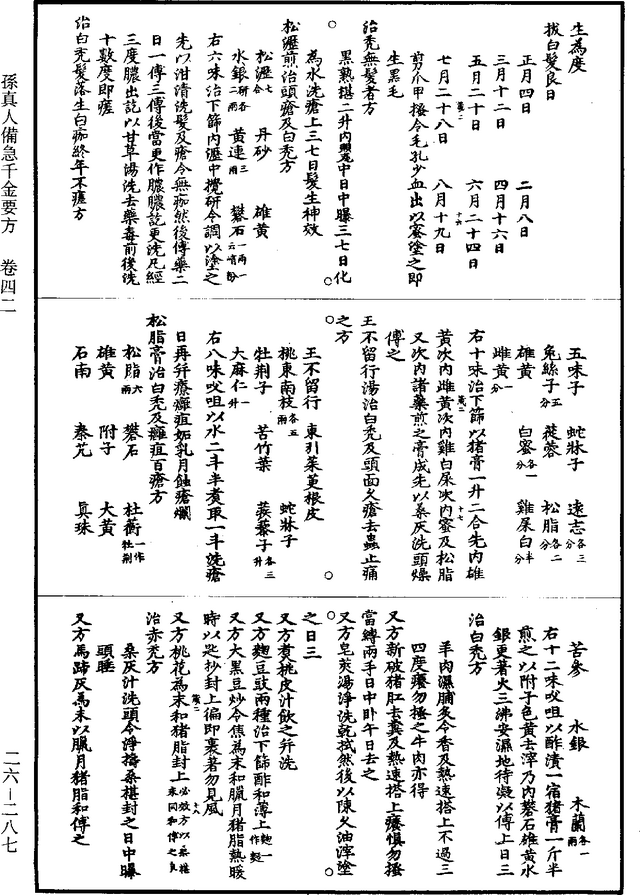 生為度
拔白髮良日
正月四日　二月八日
三月十二日　四月十六日
五月二十日　六月二十四日
七月二十八日　八月十九日
剪爪甲搔令毛孔少血出以蜜塗之即
生黑毛
治禿無髮者方
黑熟椹二升內甖中日中曝三七日化
為水洗瘡上三七日髮生神效
松瀝煎治頭瘡及白禿方
松瀝七合　丹砂　雄黃
水銀研各二兩　黃連三兩　礬石一兩一云
右六味治下篩內瀝中攪研令調以塗之
先以泔清洗髮及瘡令無痂然後傅藥二
日一傅三傅後當更作膿膿訖更洗凡經
三度膿出訖以甘草湯洗去藥毒前後洗
十數度即瘥
治白禿髮落生白痂終年不瘥方
五味子　蛇牀子　遠志各三分
兔絲子五分　蓯蓉　松脂各二分
雄黃　白蜜各一分　雞屎白半分
雌黃一分
右十味治下篩以猪膏一升二合先內雄
黃次內雌黃次內雞白屎次內蜜及松脂
又次內諸藥煎之膏成先以桑灰洗頭燥
傅之
王不留行湯治白禿及頭面久瘡去蟲止痛
之方
王不留行　東引茱萸根皮
桃東南枝各五兩　蛇牀子
牡荊子　苦竹葉　蒺藜子各三升
大麻仁一升
右八味㕮咀以水二斗半煮取一斗洗瘡
日再并療癰疽妬乳月蝕瘡爛
松脂膏治白禿及癰疽百瘡方
松脂六兩　礬石　杜蘅一作牡荊
雄黃　附子　大黃
石南　秦艽　真珠
苦參　水銀　木蘭各一兩
右十二味㕮咀以酢漬一宿猪膏一斤半
煎之以附子色黃去滓乃內礬石雄黃水
銀更著火三沸安濕地待凝以傅上日三
治白禿方
羊肉濕脯炙令香及熱速搭上不過三
四度癢勿搔之牛肉亦得
又方新破猪肚去糞及熱速搭上癢慎勿搔
當縛兩手日中卧午日去之
又方皂莢湯淨洗乾拭然後以陳久油滓塗
之日三
又方煮桃皮汁飲之并洗
又方麴豆豉兩種治下篩酢和薄上麴一作麪
又方大黑豆炒令焦為末和臘月猪脂熱暖
時以匙抄封上徧即裹著勿見風
又方桃花為末和猪脂封上必效方以桑椹末同和傅之良
治赤禿方
桑灰汁洗頭令淨擣桑椹封之日中曝
頭睡
又方馬蹄灰為末以臘月猪脂和傅之
孫真人備急千金要方　卷四二
二六－二八七